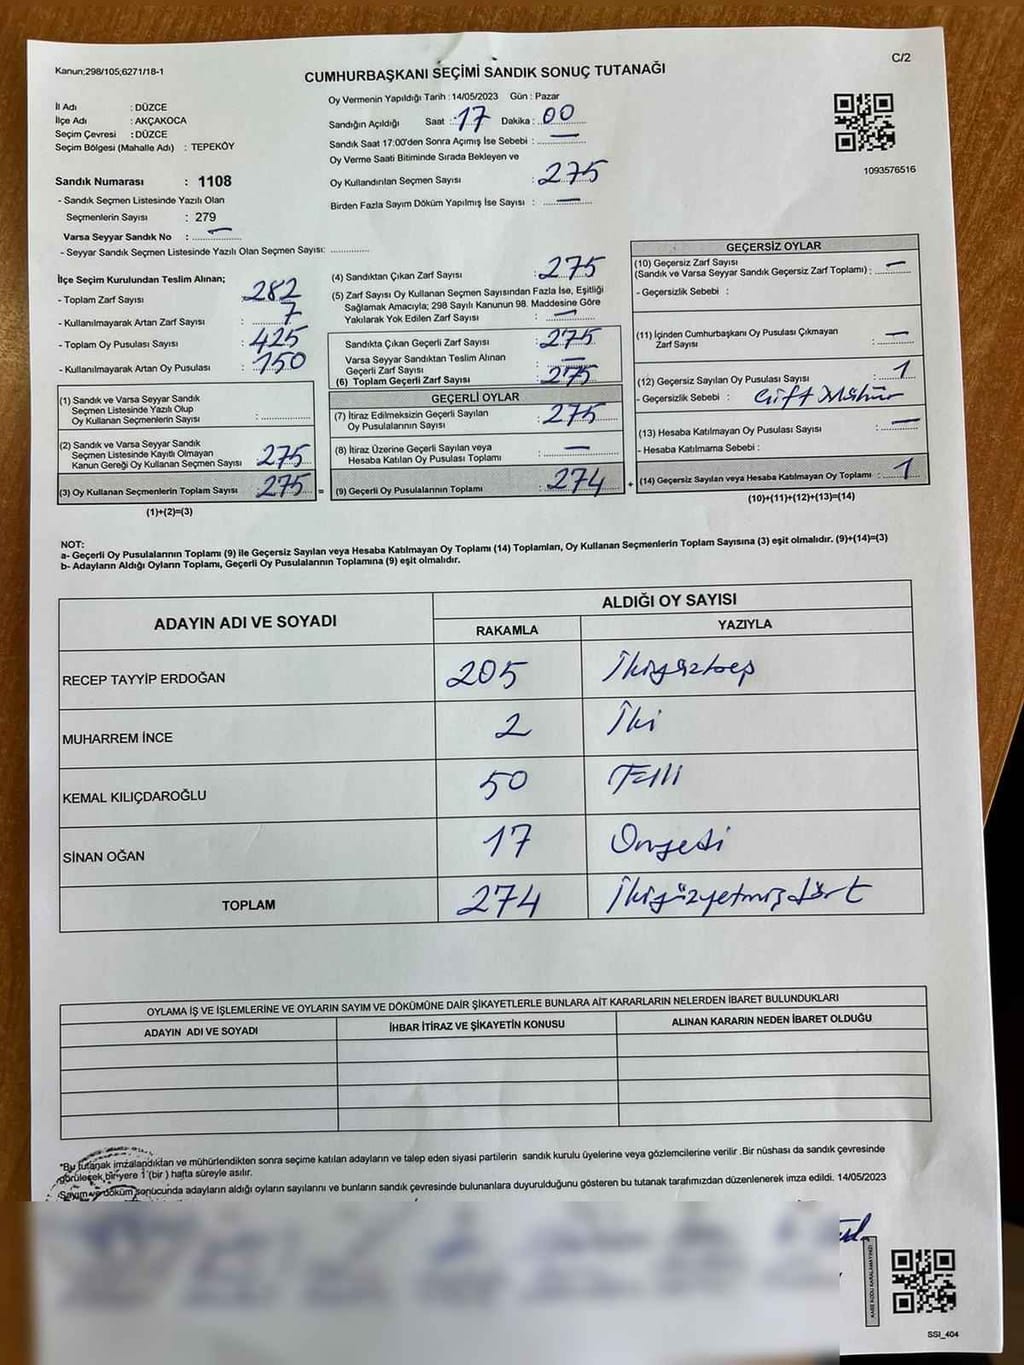 Kanun;298/105;6271/18-1
C/2
CUMHURBAŞKANI SEÇİMİ SANDIK SONUÇ TUTANAĞI
İl Adı : DÜZCE
İlçe Adı : AKÇAKOCA
Seçim Çevresi : DÜZCE
Seçim Bölgesi (Mahalle Adı) : TEPEKÖY
Sandık Numarası : 1108
- Sandık Seçmen Listesinde Yazılı Olan
Seçmenlerin Sayısı : 279
Varsa Seyyar Sandık No : —
- Seyyar Sandık Seçmen Listesinde Yazılı Olan Seçmen Sayısı: ..............
Oy Vermenin Yapıldığı Tarih : 14/05/2023 Gün : Pazar
Sandığın Açıldığı Saat : 17 Dakika : 00
Sandık Saat 17:00'den Sonra Açımış İse Sebebi : —
Oy Verme Saati Bitiminde Sırada Bekleyen ve
Oy Kullandırılan Seçmen Sayısı : 275
Birden Fazla Sayım Döküm Yapılmış İse Sayısı : —
1093576516
İlçe Seçim Kurulundan Teslim Alınan;
- Toplam Zarf Sayısı 282
- Kullanılmayarak Artan Zarf Sayısı : 7
- Toplam Oy Pusulası Sayısı : 425
- Kullanılmayarak Artan Oy Pusulası : 150
(1) Sandık ve Varsa Seyyar Sandık
Seçmen Listesinde Yazılı Olup
Oy Kullanan Seçmenlerin Sayısı :
(2) Sandık ve Varsa Seyyar Sandık
Seçmen Listesinde Kayıtlı Olmayan
Kanun Gereği Oy Kullanan Seçmen Sayısı 275
(3) Oy Kullanan Seçmenlerin Toplam Sayısı 275 =
(1)+(2)=(3)
(4) Sandıktan Çıkan Zarf Sayısı : 275
(5) Zarf Sayısı Oy Kullanan Seçmen Sayısından Fazla İse, Eşitliği
Sağlamak Amacıyla; 298 Sayılı Kanunun 98. Maddesine Göre
Yakılarak Yok Edilen Zarf Sayısı : —
Sandıkta Çıkan Geçerli Zarf Sayısı : 275
Varsa Seyyar Sandıktan Teslim Alınan
Geçerli Zarf Sayısı : —
(6) Toplam Geçerli Zarf Sayısı : 275
GEÇERLİ OYLAR
(7) İtiraz Edilmeksizin Geçerli Sayılan
Oy Pusulalarının Sayısı : 275
(8) İtiraz Üzerine Geçerli Sayılan veya
Hesaba Katılan Oy Pusulası Toplamı : —
(9) Geçerli Oy Pusulalarının Toplamı : 274 +
GEÇERSİZ OYLAR
(10) Geçersiz Zarf Sayısı
(Sandık ve Varsa Seyyar Sandık Geçersiz Zarf Toplamı) : —
- Geçersizlik Sebebi :
(11) İçinden Cumhurbaşkanı Oy Pusulası Çıkmayan
Zarf Sayısı : —
(12) Geçersiz Sayılan Oy Pusulası Sayısı : 1
- Geçersizlik Sebebi : Çift Mühür
(13) Hesaba Katılmayan Oy Pusulası Sayısı : —
- Hesaba Katılmama Sebebi :
(14) Geçersiz Sayılan veya Hesaba Katılmayan Oy Toplamı : 1
(10)+(11)+(12)+(13)=(14)
NOT:
a- Geçerli Oy Pusulalarının Toplamı (9) ile Geçersiz Sayılan veya Hesaba Katılmayan Oy Toplamı (14) Toplamları, Oy Kullanan Seçmenlerin Toplam Sayısına (3) eşit olmalıdır. (9)+(14)=(3)
b- Adayların Aldığı Oyların Toplamı, Geçerli Oy Pusulalarının Toplamına (9) eşit olmalıdır.
ADAYIN ADI VE SOYADI
ALDIĞI OY SAYISI
RAKAMLA YAZIYLA
RECEP TAYYİP ERDOĞAN 205 İkiyüzbeş
MUHARREM İNCE 2 İki
KEMAL KILIÇDAROĞLU 50 Elli
SİNAN OĞAN 17 Onyedi
TOPLAM 274 İkiyüzyetmişdört
OYLAMA İŞ VE İŞLEMLERİNE VE OYLARIN SAYIM VE DÖKÜMÜNE DAİR ŞİKAYETLERLE BUNLARA AİT KARARLARIN NELERDEN İBARET BULUNDUKLARI
ADAYIN ADI VE SOYADI İHBAR İTİRAZ VE ŞİKAYETİN KONUSU ALINAN KARARIN NEDEN İBARET OLDUĞU
*Bu tutanak imzalandıktan ve mühürlendikten sonra seçime katılan adayların ve talep eden siyasi partilerin sandık kurulu üyelerine veya gözlemcilerine verilir. Bir nüshası da sandık çevresinde
görülecek bir yere 1 (bir) hafta süreyle asılır.
Sayım ve döküm sonucunda adayların aldığı oyların sayılarını ve bunların sandık çevresinde bulunanlara duyurulduğunu gösteren bu tutanak tarafımızdan düzenlenerek imza edildi. 14/05/2023
KARE KODU KARALAMAYINIZ!
SSI_404